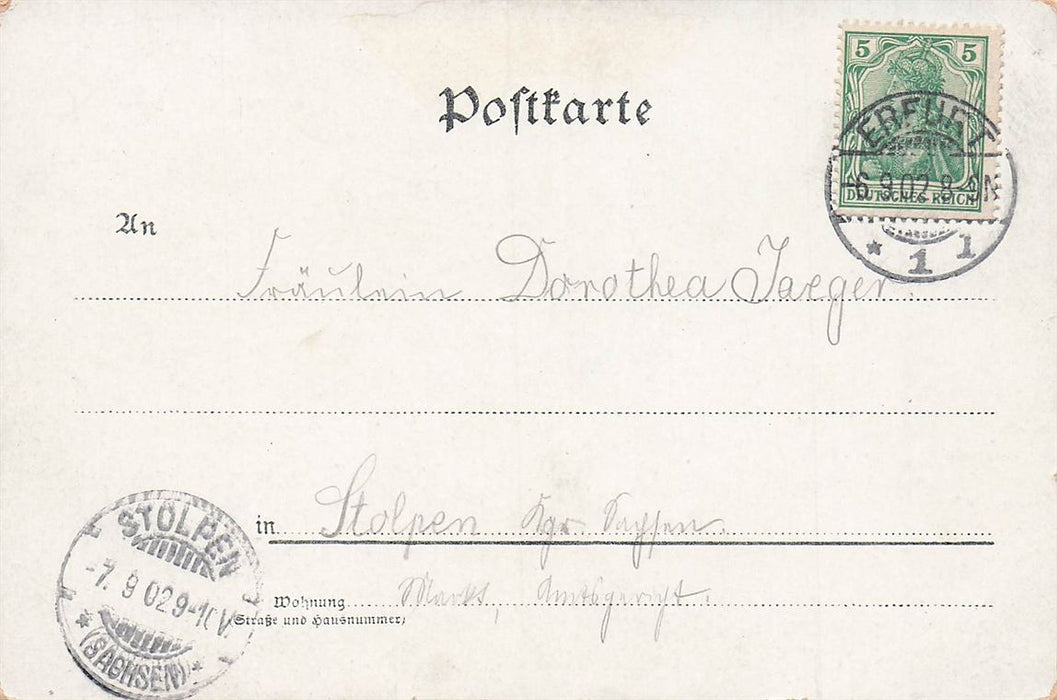 5 5
DEUTSCHES REICH
ERFURT
-6.9.02.8-9N
* 1 1
Postkarte
An
Fräulein Dorothea Jaeger.
in Stolpen Kgr. Sachsen.
Wohnung Markt, Amtsgericht.
(Straße und Hausnummer)
STOLPEN
-7. 9 02 9-10V.
* (SACHSEN) *